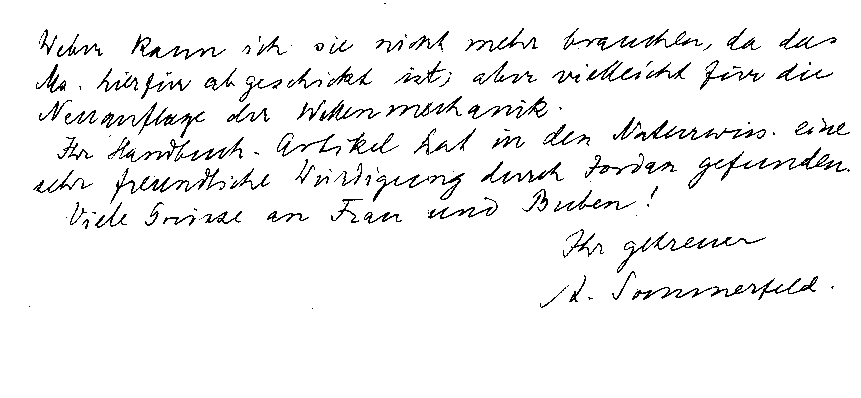 Weber kann ich sie nicht mehr brauchen, da das
Ms. hierfür abgeschickt ist, aber vielleicht für die
Neuauflage der Wellenmechanik.
Ihr Handbuch-Artikel hat in den Naturwiss. eine
sehr freundliche Würdigung durch Jordan gefunden.
Viele Grüsse an Frau und Buben!
Ihr getreuer
A. Sommerfeld.